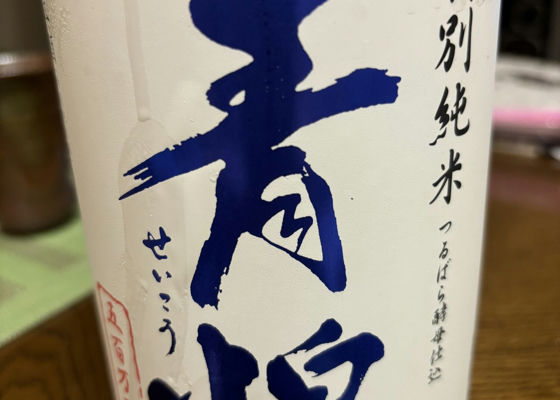 別純米
つるばら酵母仕込
青煌
せいこう
五百万